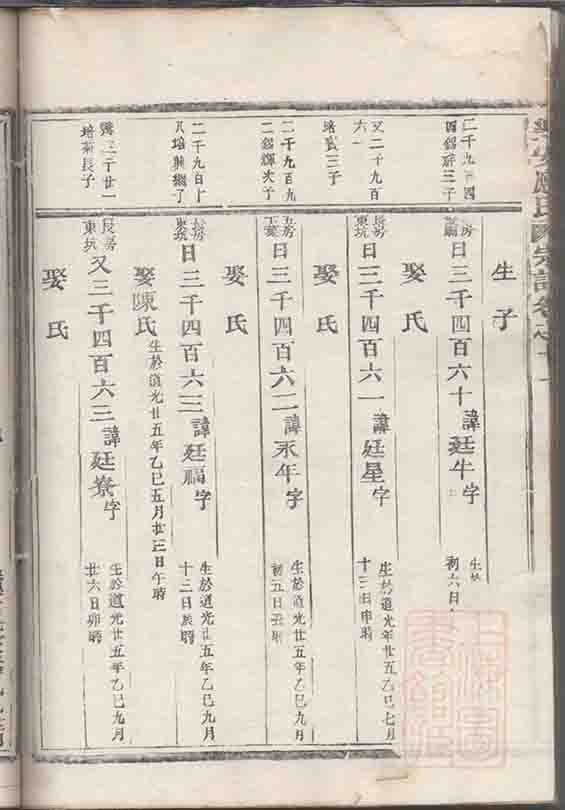 應氏 宗譜卷之十一
生子
二千九 四
三子
日三千四百六十諱廷牛字
生於
初六日
娶氏
又二千九百
六一
培 三子
長房
東坑
日三千四百六一諱廷星字
生於道光年廿五乙巳七月
十三日申時
娶氏
二千九百九
二 輝次子
房
日三千四百六二諱永年字
生於道光廿五年乙巳九月
初五日丑時
娶氏
二千九百十
八培興繼子
長房
東坑
日三千四百六三諱廷福字
生於道光廿五年乙巳九月
十二日辰時
娶陳氏
生於道光廿五年乙巳五月廿三日午時
二千廿一
培 長子
長房
東坑
又三千四百六三諱廷寮字
生於道光廿五年乙巳九月
廿六日卯時
娶氏
上海圖書館藏